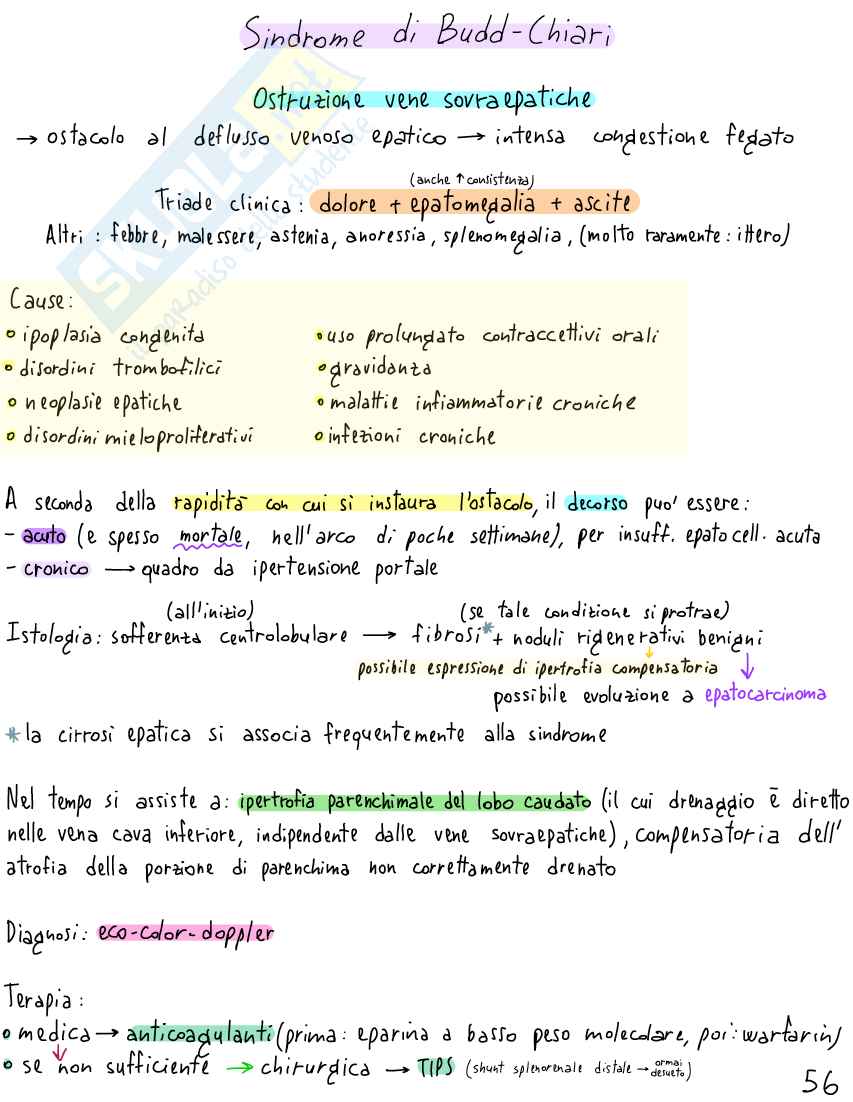 Sindrome di Budd-Chiari
Ostruzione vene sovraepatiche
→ ostacolo al deflusso venoso epatico → intensa congestione fegato
(anche ↑ consistenza)
Triade clinica: dolore + epatomegalia + ascite
Altri: febbre, malessere, astenia, anoressia, splenomegalia, (molto raramente: ittero)
SKUOLA.net
il paradiso dello studente
Cause:
• ipoplasia congenita • uso prolungato contraccettivi orali
• disordini trombofilici • gravidanza
• neoplasie epatiche • malattie infiammatorie croniche
• disordini mieloproliferativi • infezioni croniche
A seconda della rapidità con cui si instaura l'ostacolo, il decorso puo' essere:
- acuto (e spesso mortale, nell'arco di poche settimane), per insuff. epatocell. acuta
- cronico → quadro da ipertensione portale
(all'inizio) (se tale condizione si protrae)
Istologia: sofferenza centrolobulare → fibrosi* + noduli rigenerativi benigni
possibile espressione di ipertrofia compensatoria
possibile evoluzione a epatocarcinoma
* la cirrosi epatica si associa frequentemente alla sindrome
Nel tempo si assiste a: ipertrofia parenchimale del lobo caudato (il cui drenaggio è diretto
nelle vena cava inferiore, indipendente dalle vene sovraepatiche), compensatoria dell'
atrofia della porzione di parenchima non correttamente drenato
Diagnosi: eco-color-doppler
Terapia:
• medica → anticoagulanti (prima: eparina a basso peso molecolare, poi: warfarin)
• se non sufficiente → chirurgica → TIPS (shunt splenorenale distale → ormai desueto)
56